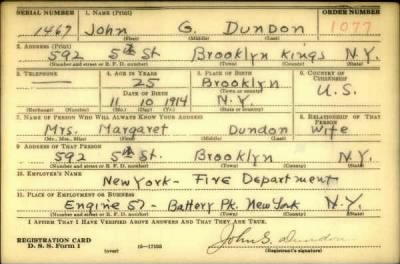 SERIAL NUMBER 1. NAME (Print) ORDER NUMBER
1467 John G. Dundon 1077
(First) (Middle) (Last)
2. ADDRESS (Print)
592 5th St. Brooklyn Kings N.Y.
(Number and street or R. F. D. number) (Town) (County) (State)
3. TELEPHONE 4. AGE IN YEARS 5. PLACE OF BIRTH 6. COUNTRY OF CITIZENSHIP
25 Brooklyn
DATE OF BIRTH (Town or county)
11 10 1914 N.Y. U.S.
(Exchange) (Number) (Mo.) (Day) (Yr.) (State or country)
7. NAME OF PERSON WHO WILL ALWAYS KNOW YOUR ADDRESS 8. RELATIONSHIP OF THAT PERSON
Mrs. Margaret Dundon Wife
(Mr., Mrs., Miss) (First) (Middle) (Last)
9. ADDRESS OF THAT PERSON
592 5th St. Brooklyn N.Y.
(Number and street or R. F. D. number) (Town) (County) (State)
10. EMPLOYER'S NAME
New York - Fire Department
11. PLACE OF EMPLOYMENT OR BUSINESS
Engine 57 - Battery Pk. New York N.Y.
(Number and street or R. F. D. number) (Town) (County) (State)
I AFFIRM THAT I HAVE VERIFIED ABOVE ANSWERS AND THAT THEY ARE TRUE.
REGISTRATION CARD
D. S. S. Form 1 (over) 16-17105 John G. Dundon
(Registrant's signature)